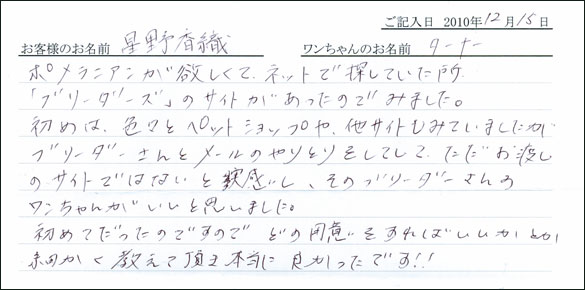 ご記入日 2010年12月15日
お客様のお名前 星野香織 ワンちゃんのお名前 ターナー
ポメラニアンが欲しくて、ネットで探していた所、
「ブリーダーズ」のサイトがあったのでみました。
初めは、色々とペットショップや、他サイトもみていましたが
ブリーダーさんとメールのやりとりをしてして、ただお渡し
のサイトではないと実感し、そのブリーダーさんの
ワンちゃんがいいと思いました。
初めてだったのですので どの用意をすればいいかとか
細かく教えて頂き本当に良かったです!!